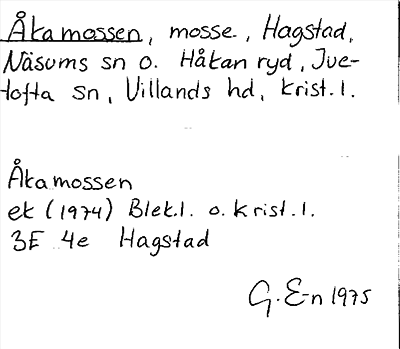 Åkamossen, mosse., Hagstad,
Näsums sn o. Håkanryd, Ive-
tofta sn, Villands hd, Krist. l.
Åkamossen
ek (1974) Blek.l. o. Krist. l.
3E 4e Hagstad
G. E-n 1975